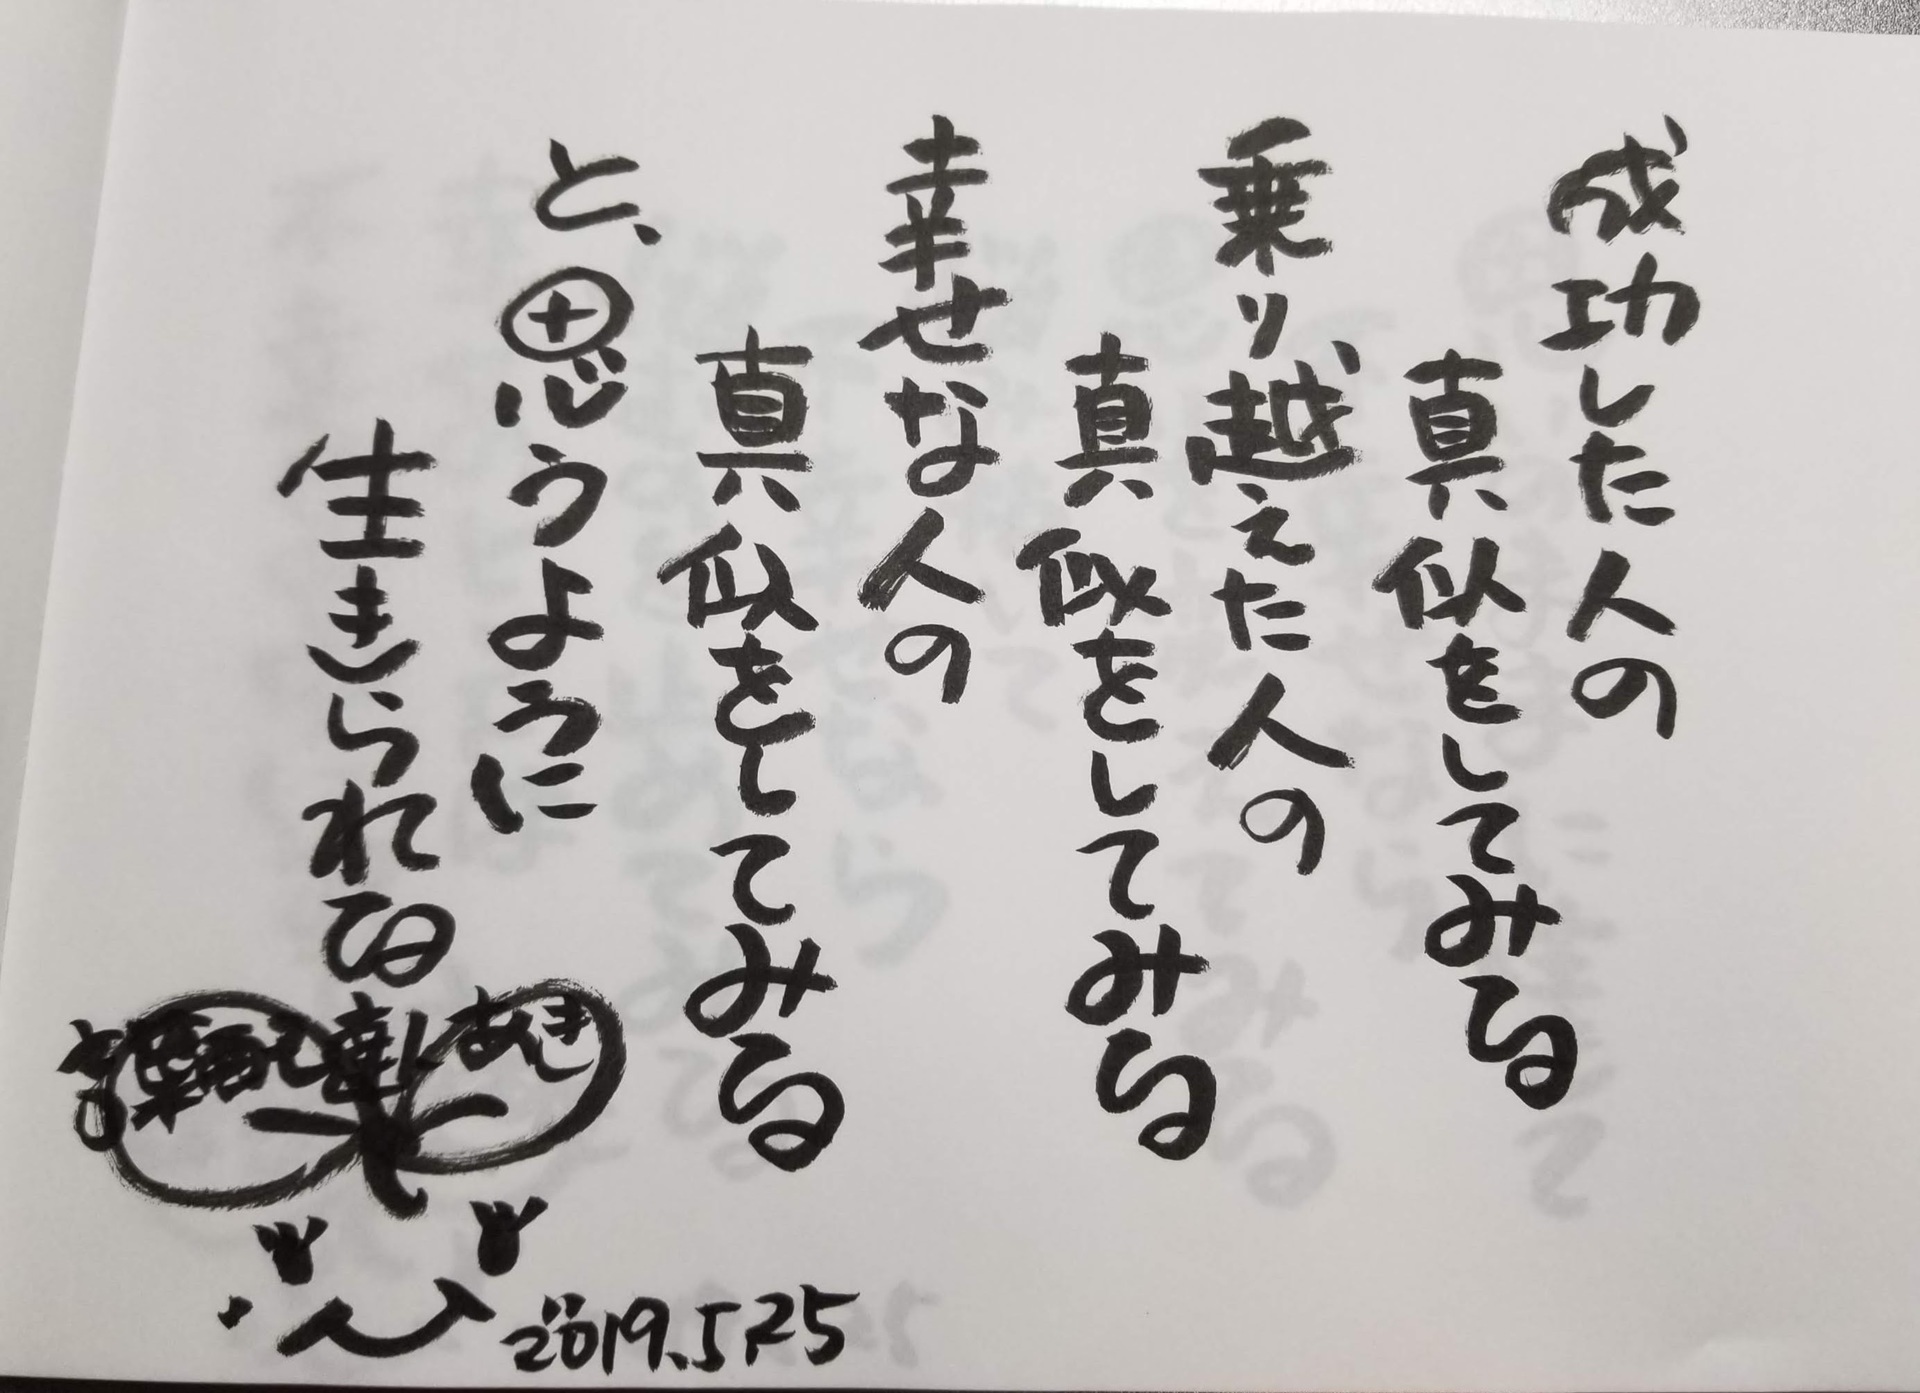 成功した人の
真似をしてみる
乗り越えた人の
真似をしてみる
幸せな人の
真似をしてみる
と、思うように
生きられる
あき
2019.5.25